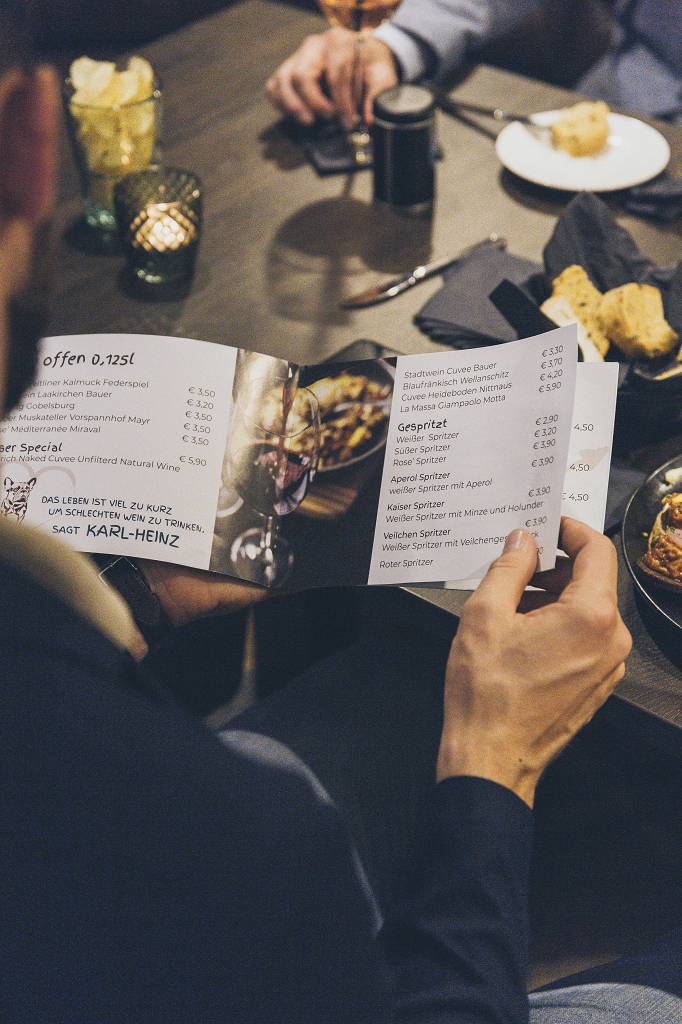 offen 0,125l
Kalmuck Federspiel € 3,50
Laakirchen Bauer € 3,20
Gobelsburg € 3,50
Muskateller Vorspannhof Mayr € 3,50
Méditerranée Miraval € 3,50
Special
Naked Cuvee Unfilterd Natural Wine € 5,90
DAS LEBEN IST VIEL ZU KURZ
UM SCHLECHTEN WEIN ZU TRINKEN.
SAGT KARL-HEINZ
Stadtwein Cuvee Bauer € 3,30
Blaufränkisch Wellanschitz € 3,70
Cuvee Heideboden Nittnaus € 4,20
La Massa Giampaolo Motta € 5,90
Gespritzt
Weißer Spritzer € 2,90
Süßer Spritzer € 3,20
Rose' Spritzer € 3,90
Aperol Spritzer € 3,90
weißer Spritzer mit Aperol
Kaiser Spritzer € 3,90
Weißer Spritzer mit Minze und Holunder
Veilchen Spritzer € 3,90
Weißer Spritzer mit
Roter Spritzer
4,50
4,50
€ 4,50